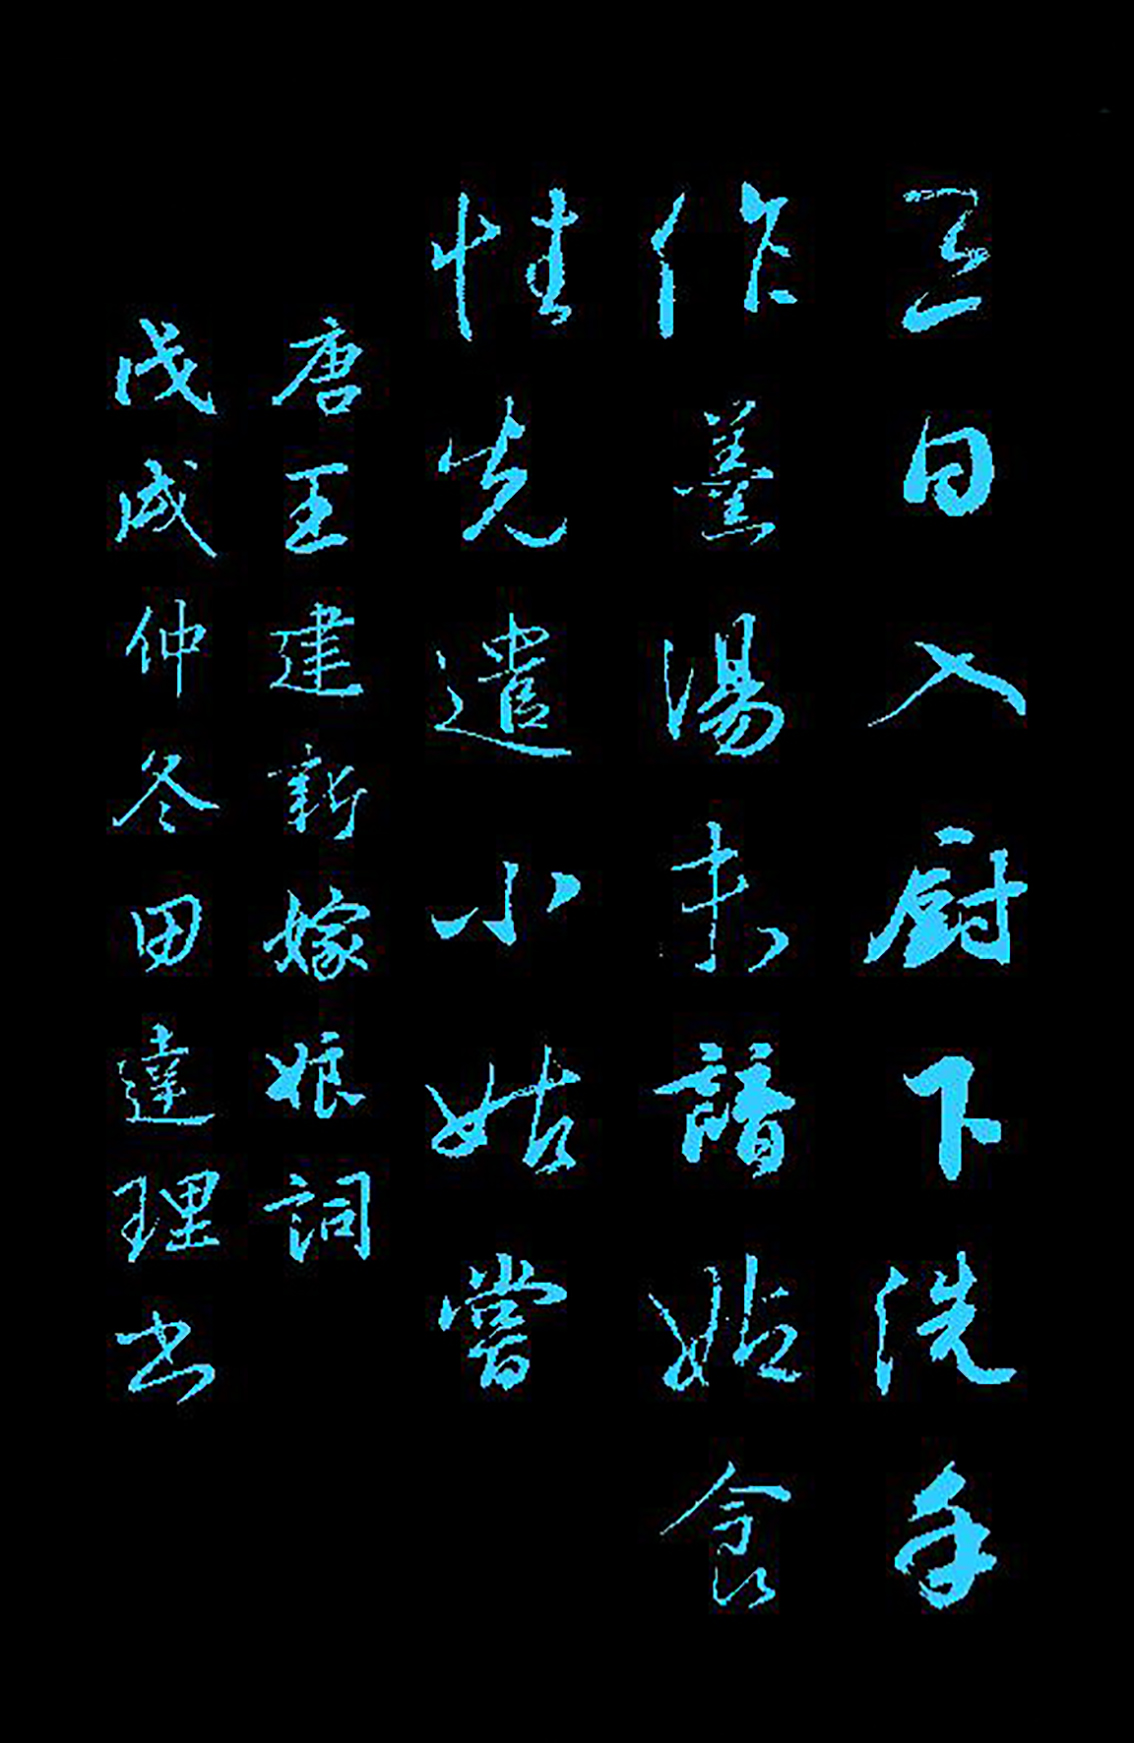 三日入厨下洗手
作羹湯未諳姑食
性先遣小姑嘗
唐王建新嫁娘詞
戊戌仲冬田達理书